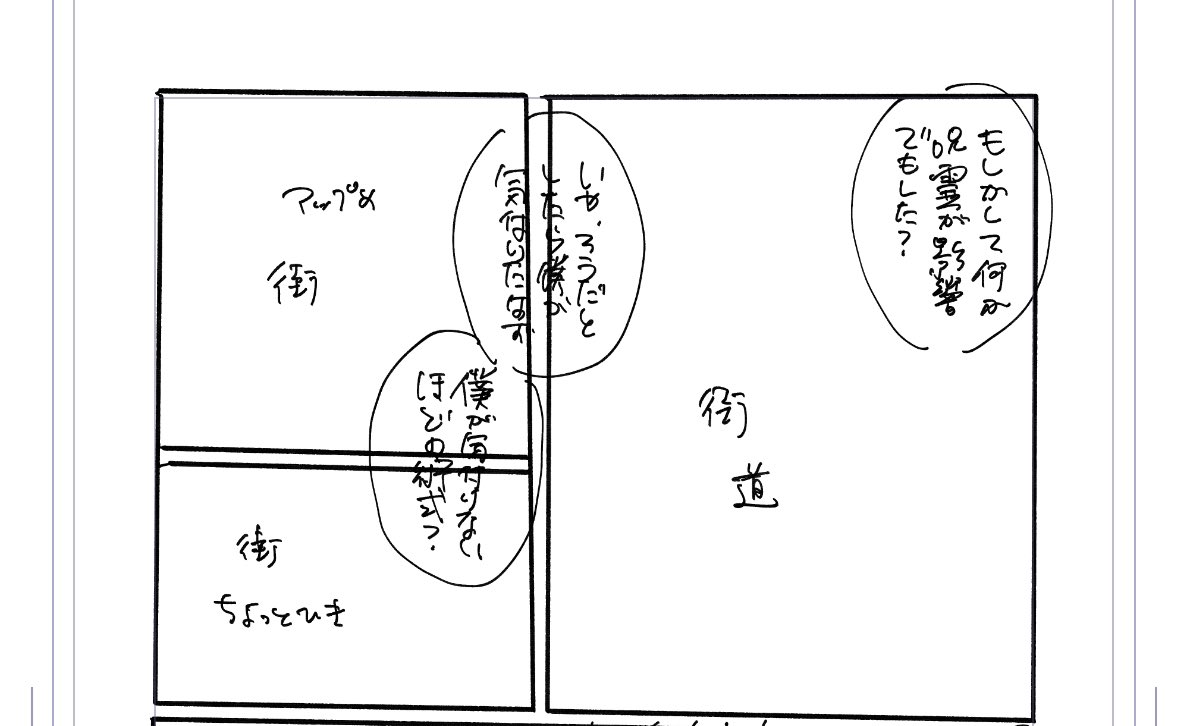 もしかして何か
呪霊が影響
でもした?
街
道
いや、そうだと
したら僕が
気付いたはず
アップめ
街
僕が気付けない
ほどの術式?
街
ちょっとひき